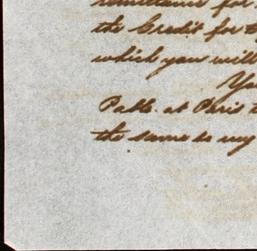 remittance for
the Credit for
which you will
Pable. at Paris
the same to my